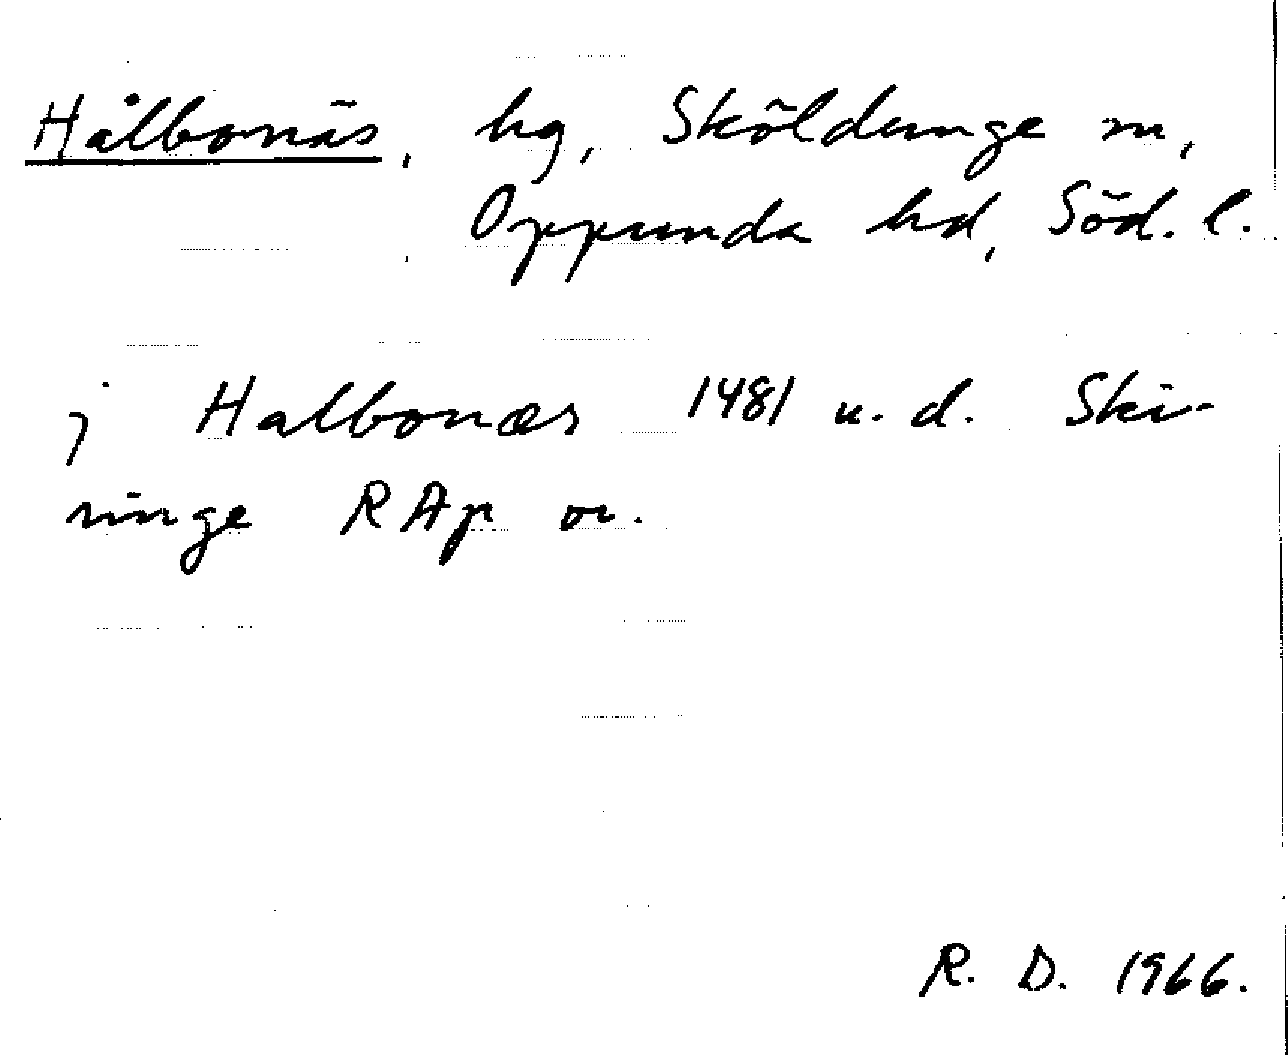 Hålbonäs, hg, Sköldinge sn,
Oppunda hd, Söd. l.
j Halbonæs 1481 u. d. Ski-
ninge RAp or.
R. D. 1966.